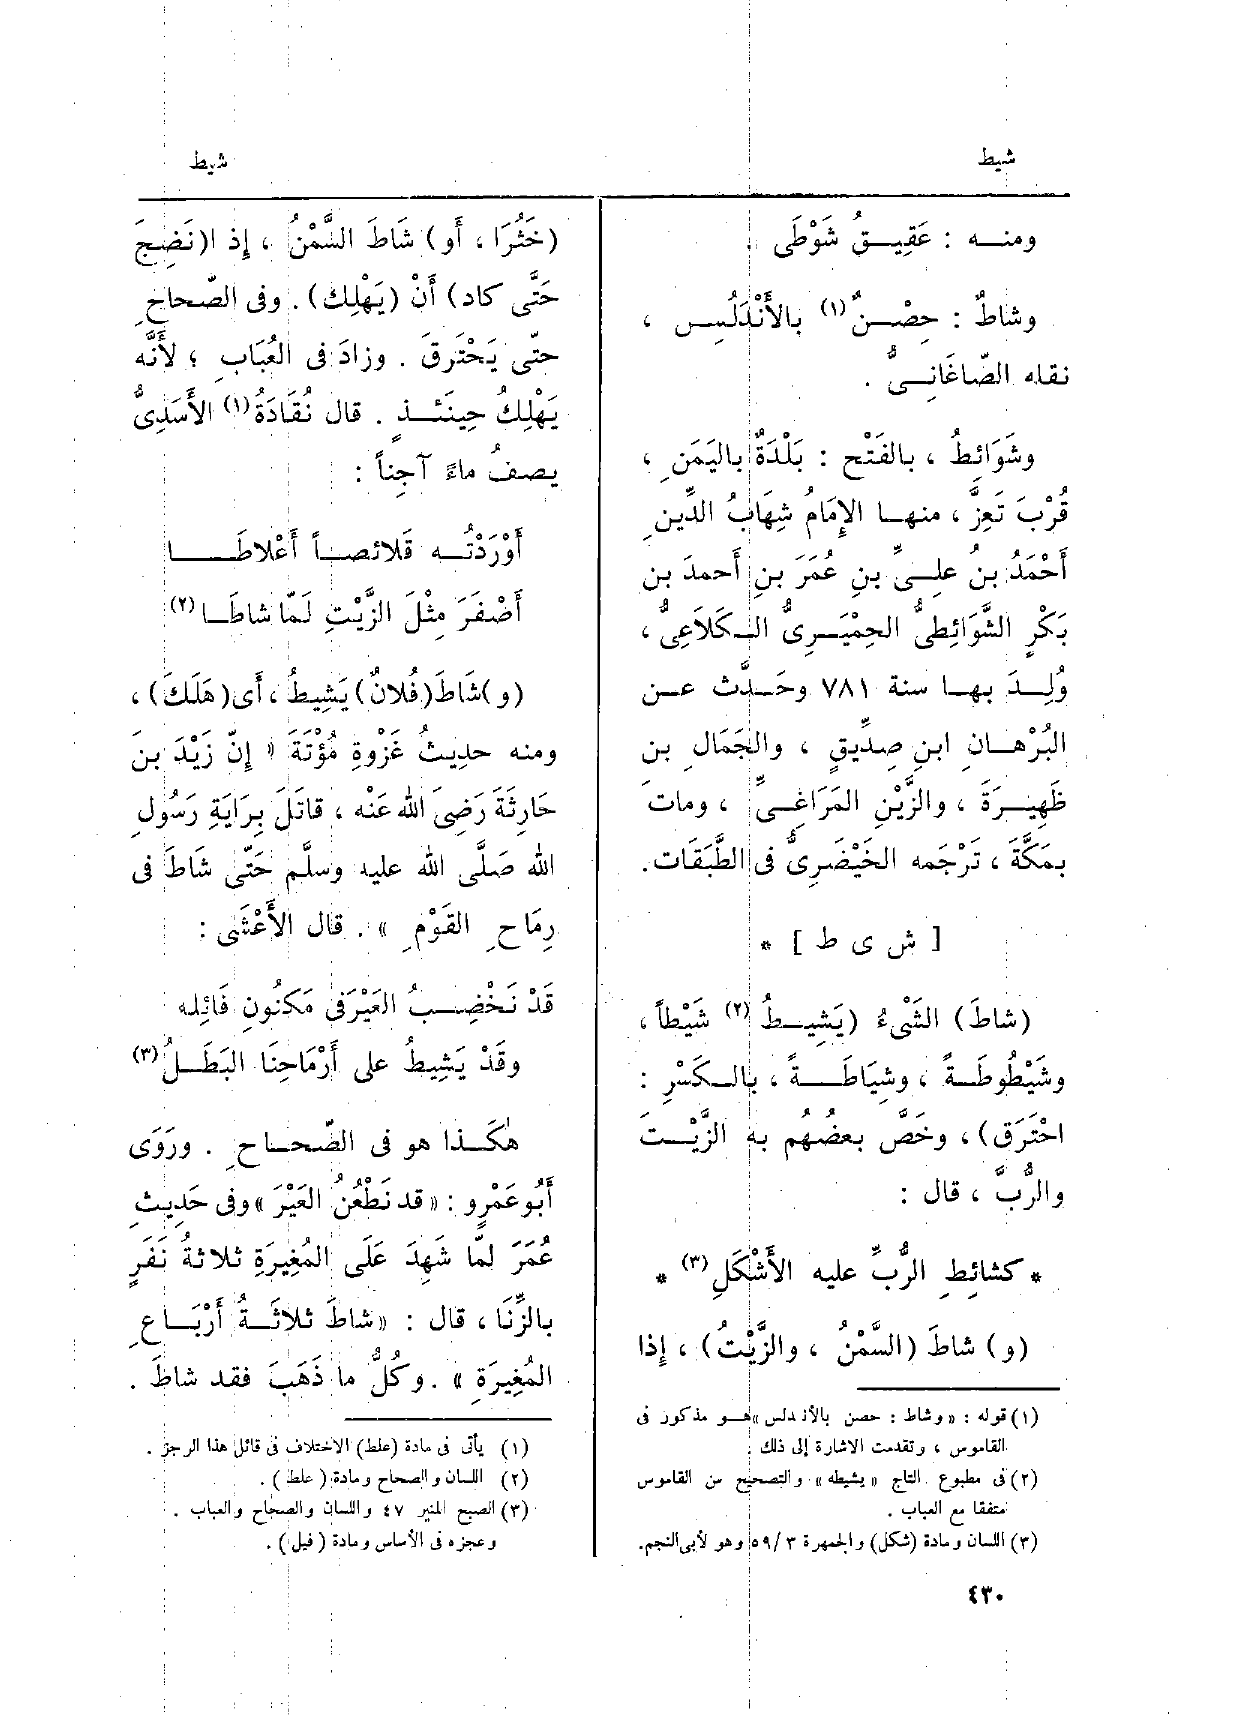 شيط
شيط
ومنه : عَقِيقُ شَوْطَى .
وشاطٌ : حِصْنٌ (١) بالأَنْدَلُس ،
نقله الصّاغَانِىُّ .
وشَوَائطُ ، بالفَتْح : بَلْدَةٌ باليَمَنِ ،
قُرْبَ تَعِزَّ ، منها الإِمَامُ شِهَابُ الدِّينِ
أَحْمَدُ بنُ علىِّ بنِ عُمَرَ بنِ أَحمدَ بن
بَكْرٍ الشَّوَائِطىُّ الحِمْيَرِىُّ الكَلَاعِىُّ ،
وُلِدَ بها سنة ٧٨١ وحَدَّث عن
البُرْهَانِ ابنِ صِدِّيقٍ ، والجَمَالِ بن
ظَهِيرَةَ ، والزَّيْنِ المَرَاغِىِّ ، ومات
بمَكَّةَ ، تَرْجَمه الخَيْضَرِىُّ فى الطَّبَقَات .
[ ش ى ط ] *
(شاطَ) الشَّىْءُ (يَشِيطُ (٢) شَيْطاً ،
وشَيْطُوطَةً ، وشِيَاطَةً ، بالكَسْرِ :
احْتَرَق) ، وخَصَّ بعضُهم به الزَّيْتَ
والرُّبَّ ، قال :
* كشائطِ الرُّبِّ عليه الأَشْكَلِ (٣) *
(و) شاطَ (السَّمْنُ ، والزَّيْتُ) ، إِذا
(١) قوله : « وشاط : حصن بالأندلس » هو مذكور فى
القاموس ، وتقدمت الاشارة إلى ذلك .
(٢) فى مطبوع التاج « يشيطه » والتصحيح من القاموس
متفقا مع العباب .
(٣) اللسان ومادة (شكل) والجمهرة ٣ /٥٩ وهو لأبى النجم.
(خَثُرَا ، أَو) شَاطَ السَّمْنُ ، إِذ ا(نَضِجَ
حَتَّى كاد) أَنْ (يَهْلِكَ) . وفى الصّحاحِ
حتّى يَحْتَرِقَ . وزادَ فى العُبَابِ ؛ لأَنَّه
يَهْلِكُ حِينَئِذٍ . قال نُقَادَةُ (١) الأَسَدِىُّ
يصفُ ماءً آجِناً :
أَوْرَدْتُه قَلائصاً أَعْلاطَا
أَصْفَرَ مِثْلَ الزَّيْتِ لَمّا شاطَا (٢)
(و) شَاطَ (فُلانٌ) يَشِيطُ ، أَى (هَلَكَ) ،
ومنه حديثُ غَزْوةِ مُؤْتَةَ « إِنّ زَيْدَ بنَ
حَارِثَةَ رَضِىَ الله عَنْه ، قاتَلَ بِرَايَةِ رَسُولِ
الله صَلَّى الله عليه وسلَّم حَتَّى شاطَ فى
رِمَاحِ القَوْمِ » . قال الأَعْشَى :
قَدْ نَخْضِبُ العَيْرَ فى مَكْنُونِ فَائِله
وقَدْ يَشِيطُ على أَرْمَاحِنَا البَطَلُ (٣)
هٰكَذا هو فى الصّحاحِ . ورَوَى
أَبُو عَمْرٍو : « قد نَطْعُنُ العَيْرَ » وفى حَدِيثِ
عُمَرَ لمّا شَهِدَ عَلَى المُغِيرَةِ ثلاثةُ نَفَرٍ
بالزِّنَا ، قال : « شاطَ ثلاثَةُ أَرْبَاعِ
المُغِيرَةِ » . وكُلُّ ما ذَهَبَ فقد شاطَ .
(١) يأتى فى مادة (علط) الاختلاف فى قائل هذا الرجز .
(٢) اللسان والصحاح ومادة (علط) .
(٣) الصبح المنير ٤٧ واللسان والصحاح والعباب .
وعجزه فى الأساس ومادة (فيل) .
٤٣٠